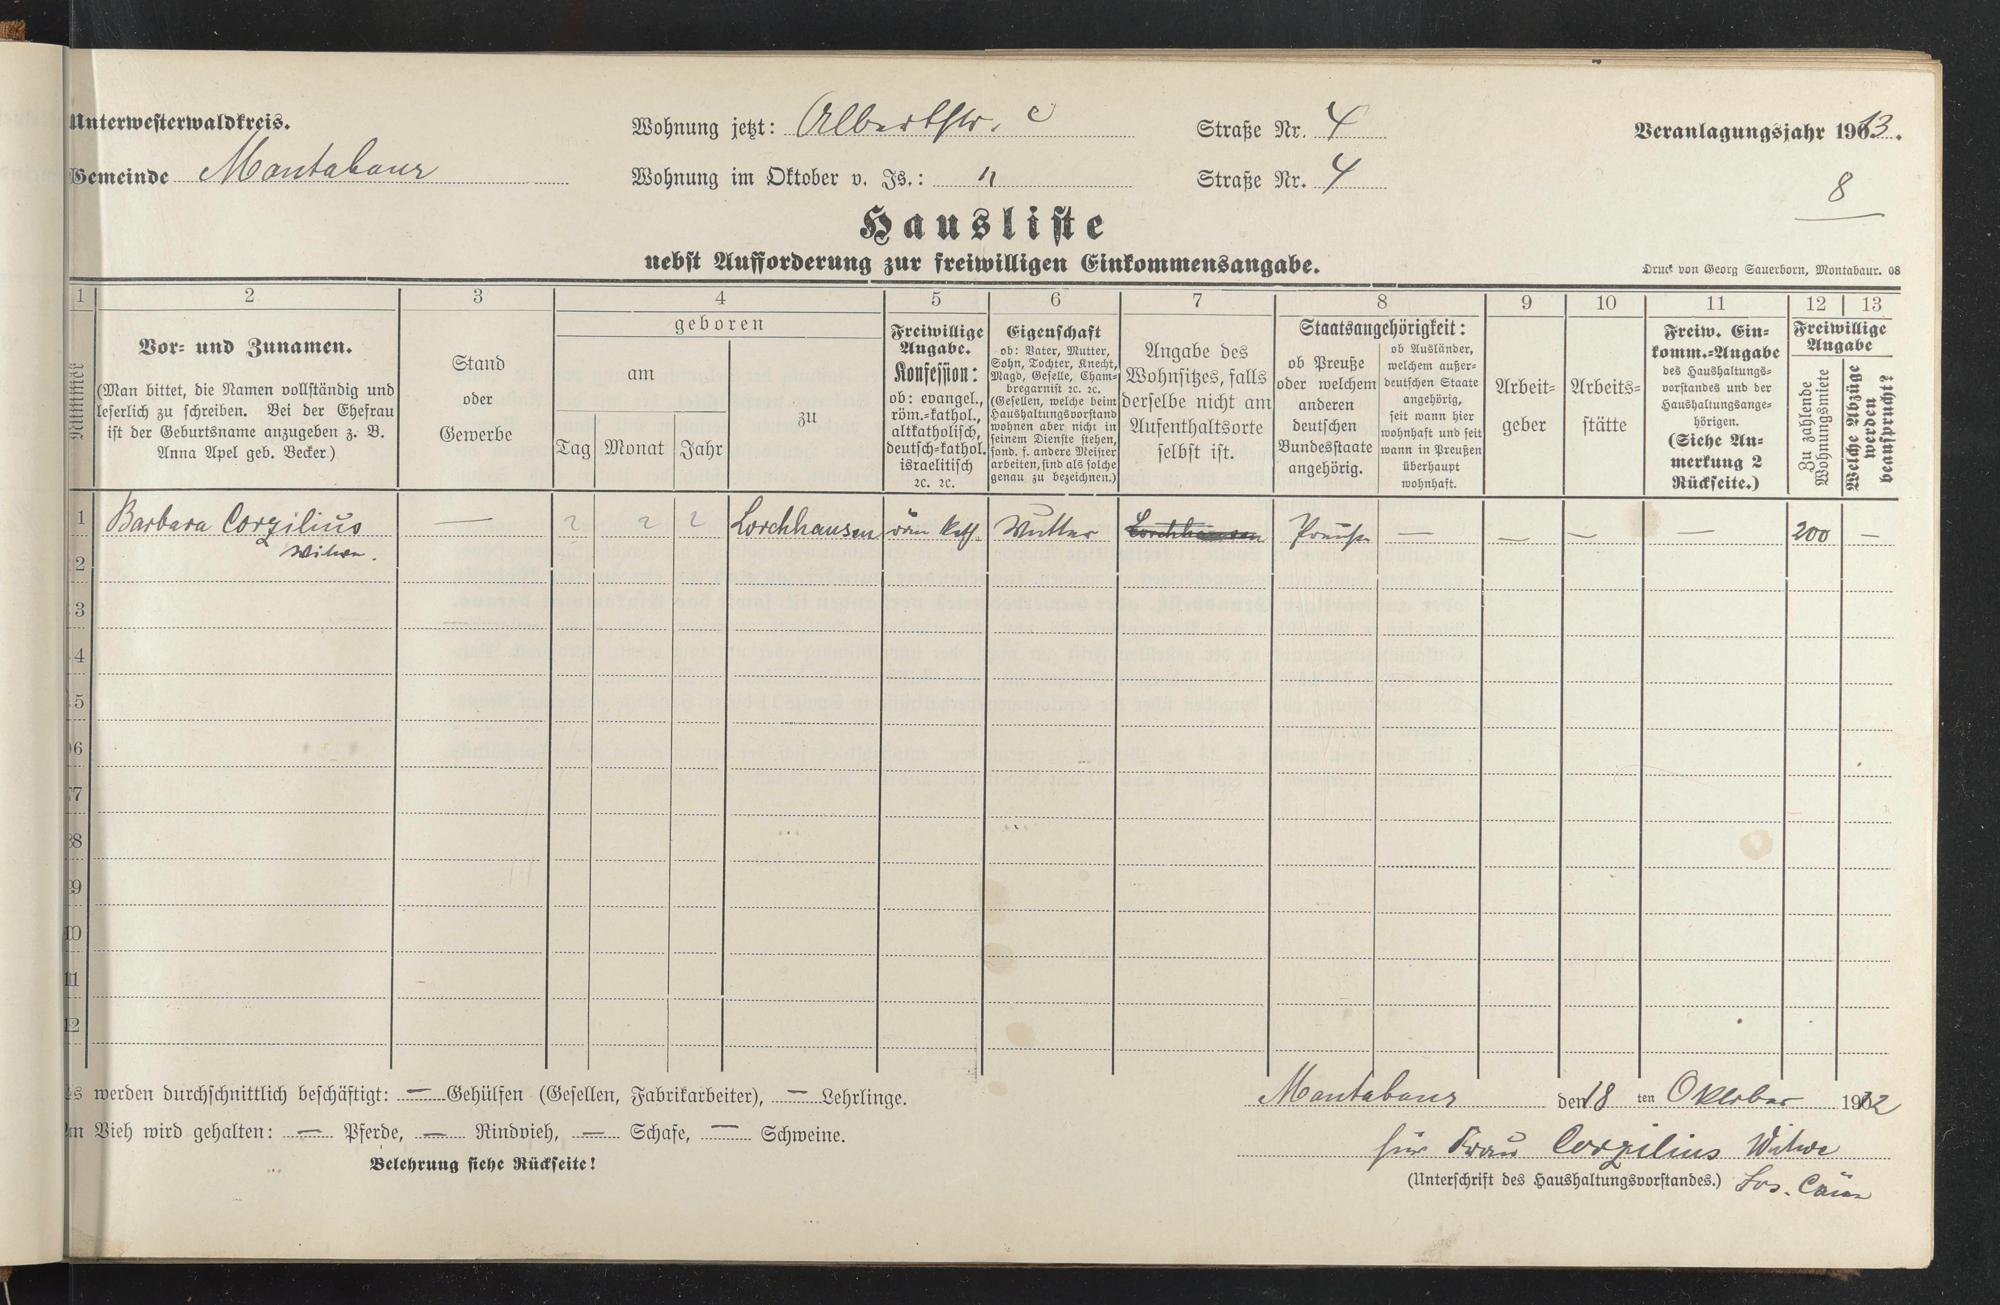 Unterwesterwaldkreis.
Wohnung jetzt: Albertstr. c Straße Nr. 4
Veranlagungsjahr 1913.
Gemeinde Montabaur
Wohnung im Oktober v. Js.: " Straße Nr. 4
8
Hausliste
nebst Aufforderung zur freiwilligen Einkommensangabe.
Druck von Georg Sauerborn, Montabaur. 08
1 2 3 4 5 6 7 8 9 10 11 12 13
Nummer
Vor- und Zunamen.
(Man bittet, die Namen vollständig und
leserlich zu schreiben. Bei der Ehefrau
ist der Geburtsname anzugeben z. B.
Anna Apel geb. Becker.)
Stand
oder
Gewerbe
geboren
am
Tag Monat Jahr
zu
Freiwillige
Angabe.
Konfession:
ob: evangel.,
röm.-kathol.,
altkatholisch,
deutsch-kathol.
israelitisch
ꝛc. ꝛc.
Eigenschaft
ob: Vater, Mutter,
Sohn, Tochter, Knecht,
Magd, Geselle, Cham-
bregarnist ꝛc. ꝛc.
(Gesellen, welche beim
Haushaltungsvorstand
wohnen aber nicht in
seinem Dienste stehen,
sond. f. andere Meister
arbeiten, sind als solche
genau zu bezeichnen.)
Angabe des
Wohnsitzes, falls
derselbe nicht am
Aufenthaltsorte
selbst ist.
Staatsangehörigkeit:
ob Preuße
oder welchem
anderen
deutschen
Bundesstaate
angehörig.
ob Ausländer,
welchem außer-
deutschen Staate
angehörig,
seit wann hier
wohnhaft und seit
wann in Preußen
überhaupt
wohnhaft.
Arbeit-
geber
Arbeits-
stätte
Freiw. Ein-
komm.-Angabe
des Haushaltungs-
vorstandes und der
Haushaltungsange-
hörigen.
(Siehe An-
merkung 2
Rückseite.)
Freiwillige
Angabe
Zu zahlende
Wohnungsmiete
Welche Abzüge
werden
beansprucht?
1 Barbara Corzilius — ? ? ? Lorchhausen röm kath. Mutter Lorchhausen Preuße — — — — 200 —
Witwe.
2
3
4
5
6
7
8
9
10
11
12
Es werden durchschnittlich beschäftigt: — Gehülfen (Gesellen, Fabrikarbeiter), — Lehrlinge.
An Vieh wird gehalten: — Pferde, — Rindvieh, — Schafe, — Schweine.
Belehrung siehe Rückseite!
Montabaur den 18 ten Oktober 1912
für Frau Corzilius Witwe
(Unterschrift des Haushaltungsvorstandes.) Jos.